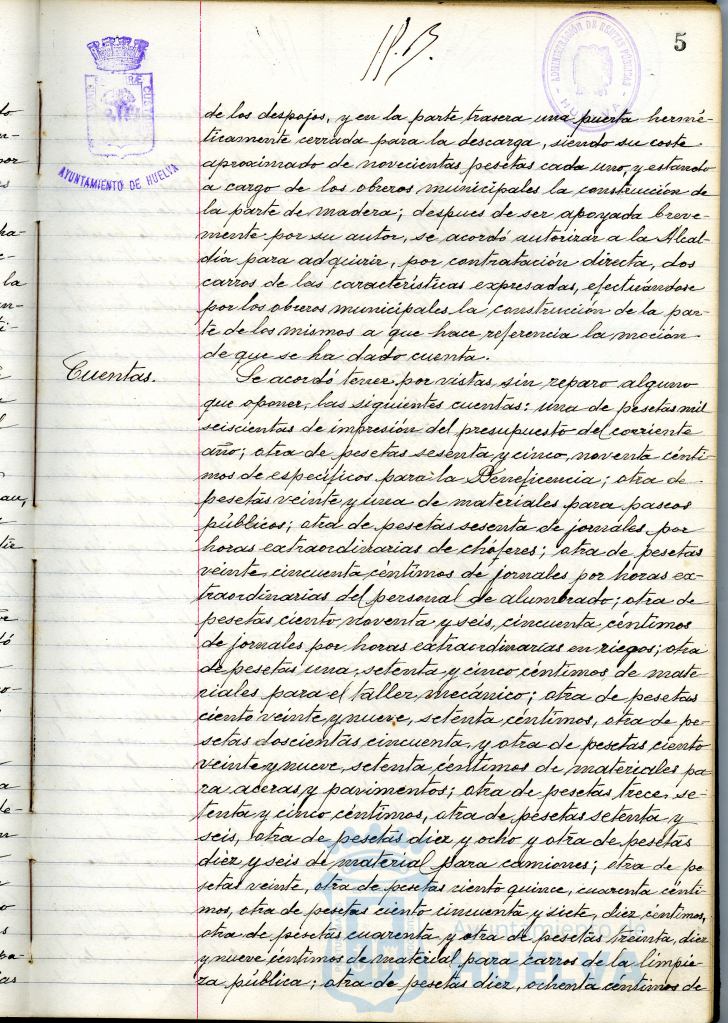 5
AYUNTAMIENTO DE HUELVA
ADMINISTRACIÓN DE RENTAS PÚBLICAS
HUELVA
de los despojos, y en la parte trasera una puerta hermé-
ticamente cerrada para la descarga, siendo su coste
aproximado de novecientas pesetas cada uno, y estando
a cargo de los obreros municipales la construcción de
la parte de madera; despues de ser apoyada breve-
mente por su autor, se acordó autorizar a la Alcal-
día para adquirir, por contratación directa, dos
carros de las características expresadas, efectuándose
por los obreros municipales la construcción de la par-
te de los mismos a que hace referencia la moción
de que se ha dado cuenta.
Cuentas.
Se acordó tener por vistas, sin reparo alguno
que oponer, las siguientes cuentas: una de pesetas mil
seiscientas de impresión del presupuesto del corriente
año; otra de pesetas sesenta y cinco, noventa cénti-
mos de específicos para la Beneficencia; otra de
pesetas veinte y una de materiales para paseos
públicos; otra de pesetas sesenta de jornales por
horas extraordinarias de chóferes; otra de pesetas
veinte, cincuenta céntimos de jornales por horas ex-
traordinarias del personal de alumbrado; otra de
pesetas ciento noventa y seis, cincuenta céntimos
de jornales por horas extraordinarias en riegos; otra
de pesetas una, setenta y cinco céntimos de mate-
riales para el taller mecánico; otra de pesetas
ciento veinte y nueve, setenta céntimos, otra de pe-
setas doscientas cincuenta, y otra de pesetas ciento
veinte y nueve, setenta céntimos de materiales pa-
ra aceras y pavimentos; otra de pesetas trece, se-
tenta y cinco céntimos, otra de pesetas setenta y
seis, otra de pesetas diez y ocho y otra de pesetas
diez y seis de material para camiones; otra de pe-
setas veinte, otra de pesetas ciento quince, cuarenta cénti-
mos, otra de pesetas ciento cincuenta y siete, diez céntimos,
otra de pesetas cuarenta y otra de pesetas treinta, diez
y nueve céntimos de material para carros de la limpie-
za pública; otra de pesetas diez, ochenta céntimos de
Ayuntamiento de
HUELVA